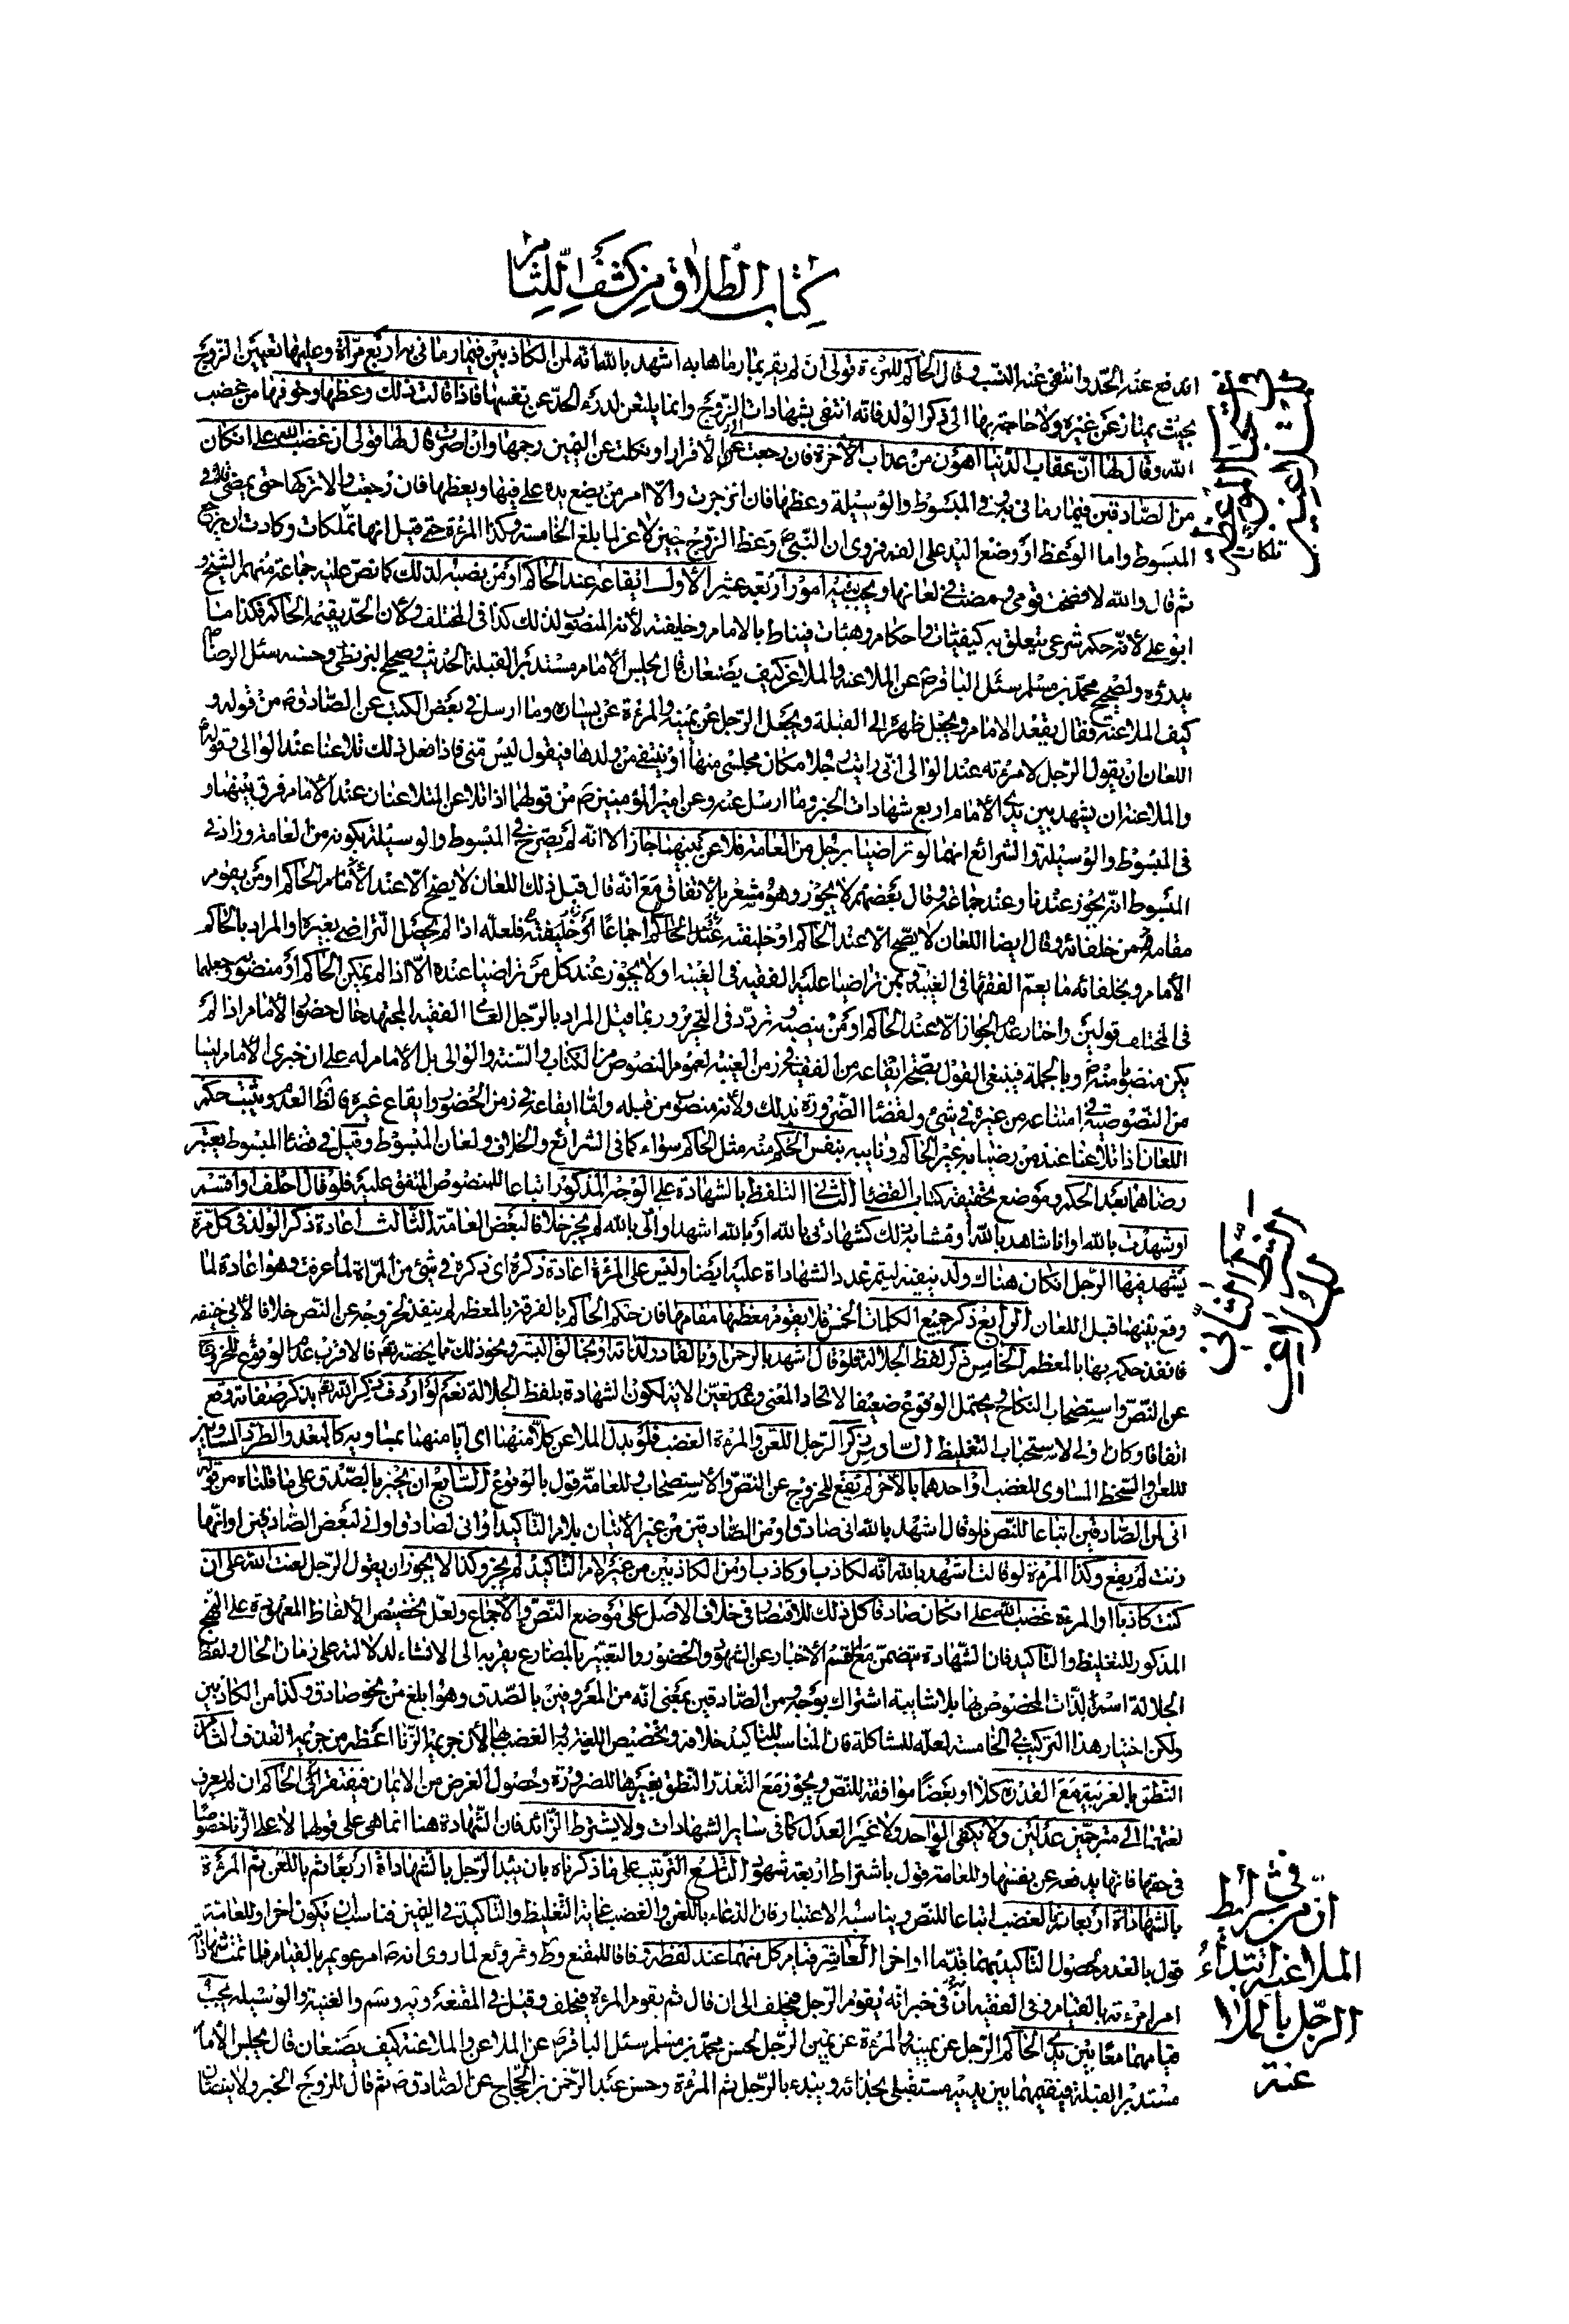 كتاب الطلاق من كشف اللثام
اندفع عنه الحد وانتفى عنه النسب وقال الحاكم للمرءة قولى ان لم يقر بما رماها به اشهد بالله انه لمن الكاذبين فيما رمانى به اربع مراة وعليها تعيين الزوج
بحيث يمتاز عن غيره ولا حاجة بها الى ذكر الولد فانه انتفى بشهادات الزوج وانما يلتعن لدرء الحد عن نفسها فاذا قالت ذلك وعظها وخوفها من غضب
الله وقال لها ان عقاب الدنيا اهون من عذاب الاخرة فان رجعت الى الاقرار او نكلت عن اليمين رجمها وان اصرت قال لها قولى ان غضب الله على ان كان
من الصادقين فيما رمانى به وفي المبسوط والوسيلة وعظها فان انزجرت والا امر من يضع يده على فيها ويعظها فان رجعت والا تركها حتى يمضى
المبسوط واما الوعظ او وضع اليد على الفم فروى ان النبي ص وعظ الزوج حين لاعن لما بلغ الخامسة وكذا المرءة حتى قيل انها تلكات وكادت ان يرجع
ثم قال والله لا فضحت قومى ومضت في لعانها ويجب فيه امور اربعة عشر الاول ايقاعه عند الحاكم او من ينصبه لذلك كما نص عليه جماعة منهم الشيخ و
ابو على لانه حكم شرعى يتعلق به كيفيات واحكام وهيئات فيناط بالامام وخليفته لانه المنصوب لذلك كذا في المختلف ولان الحد يقيمه الحاكم فكذا ما
يدرؤه ولصحيح محمد بن مسلم سئل الباقر ع عن الملاعنة والملاعن كيف يصنعان قال يجلس الامام مستدبر القبلة الحديث وصحيح البزنطى وحسنه سئل الرضا ع
كيف الملاعنة فقال يقعد الامام ويجعل ظهره الى القبلة ويجعل الرجل عن يمينه والمرءة عن يساره وما ارسل في بعض الكتب عن الصادق ع من قوله و
اللعان ان يقول الرجل لامرءته عند الوالى انى رايت رجلا مكان مجلسى منها او ينتفى من ولدها فيقول ليس منى فاذا فعل ذلك تلاعنا عند الوالى وقوله
والملاعنة ان يشهد بين يدى الامام اربع شهادات الخبر وما ارسل عنه وعن امير المؤمنين ع من قولهما اذا تلاعن المتلاعنان عند الامام فرق بينهما و
في المبسوط والوسيلة والشرائع انهما لو تراضيا برجل من العامة فلاعن بينهما جاز الا انه لم يصرح في المبسوط والوسيلة بكونه من العامة وزاد في
المبسوط انه يجوز عندنا وعند جماعة وقال بعضهم لا يجوز وهو مشعر بالاتفاق مع انه قال قبل ذلك اللعان لا يصح الا عند الامام الحاكم او من يقوم
مقامه من خلفائه وقال ايضا اللعان لا يصح الا عند الحاكم او خليفته اجماعا فلعله اذا لم يحصل التراضى بغيره والمراد بالحاكم
الامام وبخلفائه ما يعم الفقهاء في الغيبة بمن تراضيا عليه الفقيه في الغيبة ولا يجوز عند كل من تراضيا عنده الا اذا لم يمكن الحاكم او منصوبه وجعلهما
في المختلف قولين واختار عدم الجواز الا عند الحاكم او من ينصبه وتردد في التحرير وربما قيل المراد بالرجل العامى الفقيه المجتهد حال حضور الامام اذا لم
يكن منصوبا منه ع وبالجملة فينبغى القول بصحة ايقاعه من الفقيه في زمن الغيبة لعموم النصوص من الكتاب والسنة والوالى بل الامام له على ان خبرى الامام ليسا
من النصوصية في امتناعه من غيره في شئ ولقضاء الضرورة بذلك ولانه منصوب من قبله واما ايقاعه في زمن الحضور وايقاع غيره فالظ العدم ويثبت حكم
اللعان اذا تلاعنا عند من رضيا به غير الحاكم ونايبه بنفس الحكم منه مثل الحاكم سواء كما في الشرائع والخلاف ولعان المبسوط وقيل في قضاء المبسوط يعتبر
رضاهما بعد الحكم وموضع تحقيقه كتاب القضاء الثانى التلفظ بالشهادة على الوجه المذكور اتباعا للمنصوص المتفق عليه فلو قال احلف او اقسم
او شهدت بالله او انا شاهد بالله او مشابه ذلك كشهادتى بالله او بالله اشهد او انى بالله لم يجز خلافا لبعض العامة الثالث اعادة ذكر الولد في كل مرة
يشهد فيها الرجل ان كان هناك ولد ينفيه ليتم عدد الشهاداة عليه ايضا وليس على المرءة اعادة ذكره اى ذكره في شئ من المراة لما عرفت وهو اعادة لما
وقع بينهما قبل اللعان الرابع ذكر جميع الكلمات الخمس فلا يقوم معظمها مقامها فان حكم الحاكم بالفرقة بالمعظم لم ينفذ لخروجه عن النص خلافا لابى حنيفة
فانفذ حكمه بها بالمعظم الخامس ذكر لفظ الجلالة فلو قال اشهد بالرحمن او بالقادر لذاته او بخالق البشر ونحو ذلك مما يخصه تعم فالاقرب عدم الوقوع للخروج
عن النص واستصحاب النكاح ويحتمل الوقوع ضعيفا لاتحاد المعنى وعدم تعين الاية لكون الشهادة بلفظ الجلالة نعم لو اردف ذكر الله تعم بذكر صفاته وقع
اتفاقا وكان اولى لاستحباب التغليظ السادس ذكر الرجل اللعن والمرءة الغضب فلو بدل الملاعن كلا منهما اى ايا منهما بمساويه كالبعد والطرد المساويين
لللعن والسخط المساوى للغضب او احدهما بالاخر لم يقع للخروج عن النص والاستصحاب وللعامة قول بالوقوع السابع ان يخبر بالصدق على ما قلناه من قوله
انى لمن الصادقين اتباعا للنص فلو قال اشهد بالله انى صادق او من الصادقين من غير الاتيان بلام التاكيد او انى لصادق او انى لبعض الصادقين او انها
زنت لم يقع وكذا المرءة لو قالت اشهد بالله انه لكاذب او كاذب او من الكاذبين من غير لام التاكيد لم يجز وكذا لا يجوز ان يقول الرجل لعنت الله على ان
كنت كاذبا او المرءة غضب الله على ان كان صادقا كل ذلك للاقتصار في خلاف الاصل على موضع النص والاجماع ولعل تخصيص الالفاظ المعهودة على النهج
المذكور للتغليظ والتاكيد فان الشهادة يتضمن مع القسم الاخبار عن الشهود والحضور والتعبير بالمضارع يقربه الى الانشاء لدلالته على زمان الحال ولفظ
الجلالة اسم للذات المخصوص بها بلا شايبة اشتراك بوجه ومن الصادقين بمعنى انه من المعروفين بالصدق وهو ابلغ من نحو صادق وكذا من الكاذبين
ولكن اختيار هذا التركيب في الخامسة لعله للمشاكلة فان المناسب للتاكيد خلافه وتخصيص اللعنة به والغضب بها لان جريمة الزنا اعظم من جريمة القذف الثامن
النطق بالعربية مع القدرة كلا او بعضا موافقة للنص ويجوز مع التعذر النطق بغيرها للضرورة وحصول الغرض من الايمان فيفتقر الحاكم ان لم يعرف
لغتهما الى مترجمين عدلين ولا يكفى الواحد ولا غير العدل كما في ساير الشهادات ولا يشترط الزائد فان الشهادة هنا انما هى على قولهما لا على الزنا خصوصا
في حقها فانها يدفعه عن نفسها وللعامة قول باشتراط اربعة شهود التاسع الترتيب على ما ذكرناه بان يبدا الرجل بالشهاداة اربعا ثم باللعن ثم المرءة
بالشهاداة اربعا ثم بالغضب اتباعا للنص ويناسبه الاعتبار فان الدعاء باللعن والغضب غاية التغليظ والتاكيد في اليمين فناسب ان يكون اخرا وللعامة
قول بالعدم لحصول التاكيد بهما قدما او اخرا العاشر قيام كل منهما عند لفظه وفاقا للمقنع وط وئر ويع لما روى انه ص امر عويمر بالقيام فلما تمت شهاداته
امر امرءته بالقيام وفي الفقيه ان في خبر انه يقوم الرجل فيحلف الى ان قال ثم يقوم المرءة فيحلف وقيل في المقنعة ويه وسم والغنية والوسيله يجب
قيامهما معا بين يدى الحاكم الرجل عن يمينه والمرءة عن يمين الرجل لحسن محمد بن مسلم سئل الباقر ع عن الملاعن والملاعنة كيف يصنعان قال يجلس الامام
مستدبر القبلة فيقيمهما بين يديه مستقبلى بحذائه ويبدء بالرجل ثم المرءة وحسن عبد الرحمن بن الحجاج عن الصادق ع ثم قال للزوج الخبر ولا ينفيان
تلكات
النظر الثانى
في
ان من شرايط
الملاعنة ابتداء
الرجل بالملا
عنة